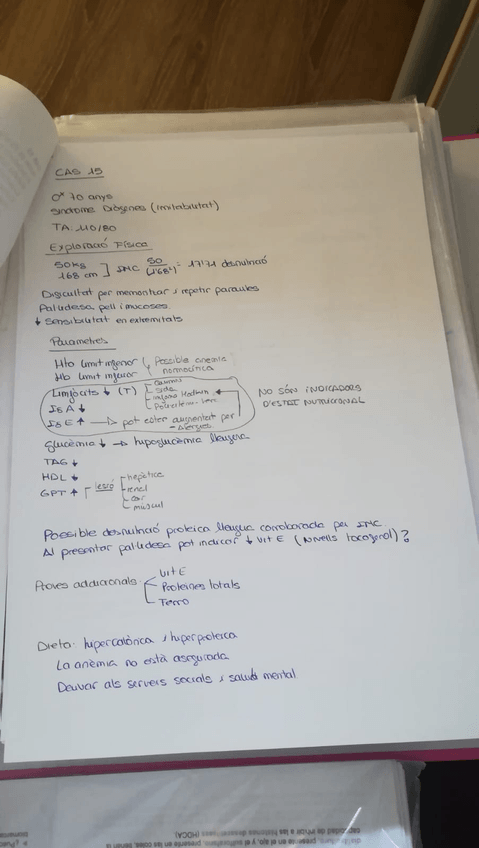 CAS 15
O* 70 anys
Síndrome Diògenes (irritabilitat)
TA: 110/80
Exploració Física
50kg
168 cm ] IMC 50/(1'68)² = 17'71 desnutrició
Dificultat per memoritzar i repetir paraules
Pal·lidesa, pell i mucoses
↓ sensibilitat en extremitats
Paràmetres
Hto límit inferior
Hb límit inferior
Possible anèmia
normocítica
Limfòcits ↓ (T)
Sida
IgA ↓
IgE ↑ → pot estar augmentat per
- al·lèrgies
NO SÓN INDICADORS
D'ESTAT NUTRICIONAL
Glucèmia ↓ → hipoglucèmia lleugera
TAG ↓
HDL ↓
GPT ↑ lesió
hepàtica
renal
cor
múscul
Possible desnutrició proteica lleugera corroborada per IMC
Al presentar pal·lidesa pot indicar ↓ vit E (Nivells tocoferol)?
Proves addicionals
Vit E
Proteïnes totals
Ferro
Dieta: hipercalòrica i hiperproteica
La anèmia no està assegurada
Derivar als serveis socials i salut mental